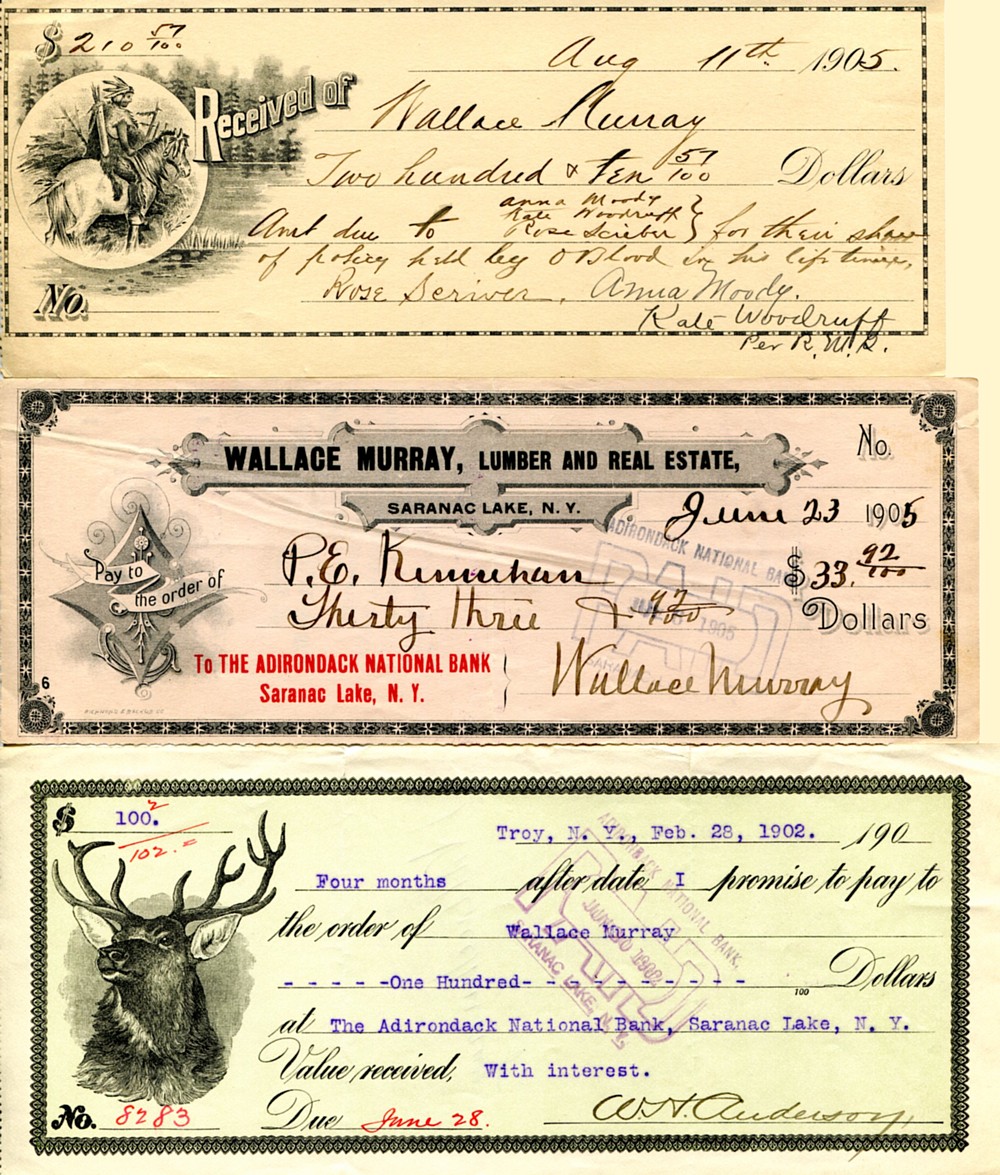 $ 210 57/100
Aug 11th 1905.
Received of Wallace Murray
Two hundred & Ten 57/100 Dollars
Anna Moody
Kate Woodruff
Amt due to Rose Scriber } for their share
of policy held by O Blood in his life time,
Rose Scriver, Anna Moody.
No.
Kate Woodruff
Per R. M. R.
WALLACE MURRAY, LUMBER AND REAL ESTATE,
No.
SARANAC LAKE, N. Y.
June 23 1905
Pay to the order of P. E. Kinnehan $ 33. 92/100
Thirty three & 92/100 Dollars
ADIRONDACK NATIONAL BANK
PAID
1905
To THE ADIRONDACK NATIONAL BANK
Saranac Lake, N. Y.
Wallace Murray
6
$ 100.
2
102.=
Troy, N. Y., Feb. 28, 1902. 190
Four months after date I promise to pay to
the order of Wallace Murray
- - - - -One Hundred- - - - - - - - - 100 Dollars
at The Adirondack National Bank, Saranac Lake, N. Y.
Value received, With interest.
No. 8283 Due June 28.
W. H. Anderson,
ADIRONDACK NATIONAL BANK,
PAID
JUN 30 1902
SARANAC LAKE, N. Y.